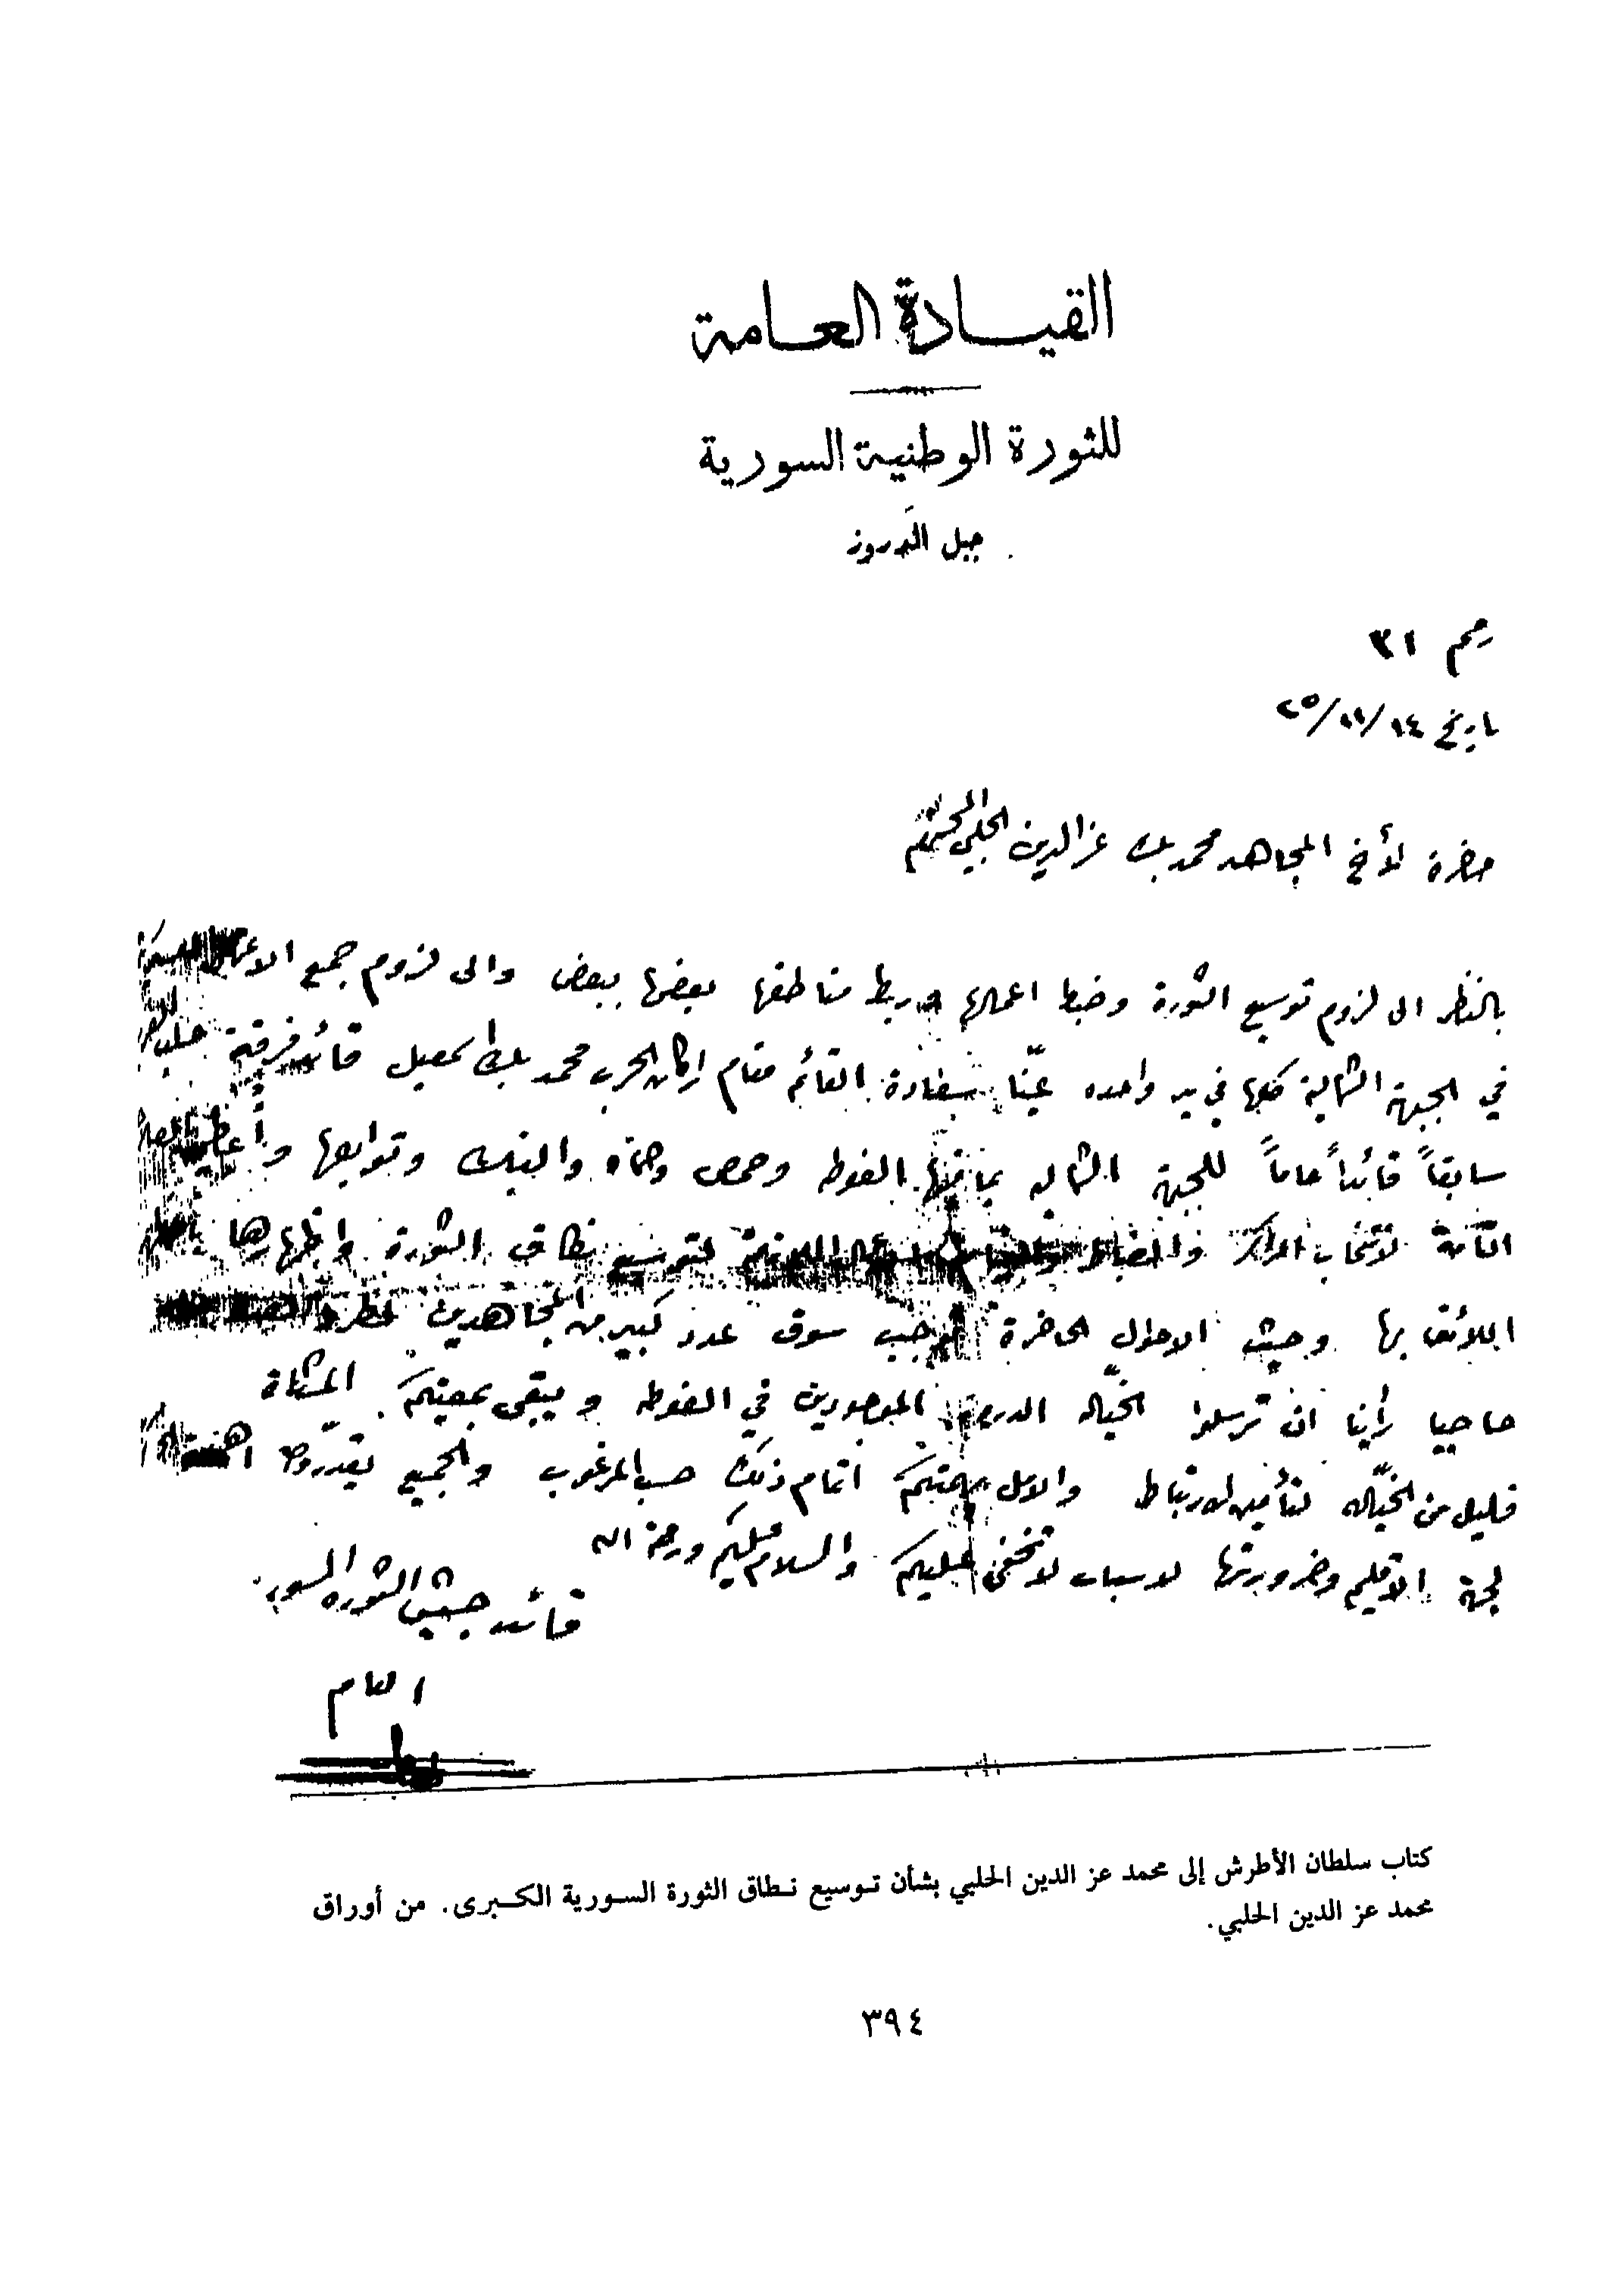 القيادة العامة
للثورة الوطنية السورية
جبل الدروز
رقم ٣١
تاريخ ١٤/١١/٢٥
حضرة الأخ المجاهد محمد بك عز الدين الحلبي المحترم
بالنظر الى لزوم توسيع الثورة وضبط اعمالها وربط مناطقها بعضها ببعض والى لزوم جمع
في الجبهة الشمالية كلها في يد واحده عيّنا سعادة القائم مقام اركان الحرب محمد بك اسمعيل قائد فرقة حلب
سابقاً قائداً عاماً للجبهة الشماليه بما فيها الغوطه وحمص وحماه والنبك وتوابعها
التامة لانتخاب المراكز والضباط لتوسيع نطاق الثورة واظهارها
اللائق بها وحيث الاحوال الحاضرة توجب سوق عدد كبير من المجاهدين لخطوط
حاصبيا رأينا ان ترسلوا الخيّاله الدروز الموجودين في الغوطه ويبقى بمعيتكم المشاة
قليل من الخيّاله لتأمين الارتباط والامل بهمتكم اتمام ذلك حسب المرغوب والجميع يقدّرون
لجهة الاقليم وضرورتها لاسباب لا تخفى عليكم والسلام عليكم ورحمة الله
قائد جيش الثوره السوريه
العام
كتاب سلطان الأطرش إلى محمد عز الدين الحلبي بشأن توسيع نطاق الثورة السورية الكبرى. من أوراق
محمد عز الدين الحلبي.
٣٩٤